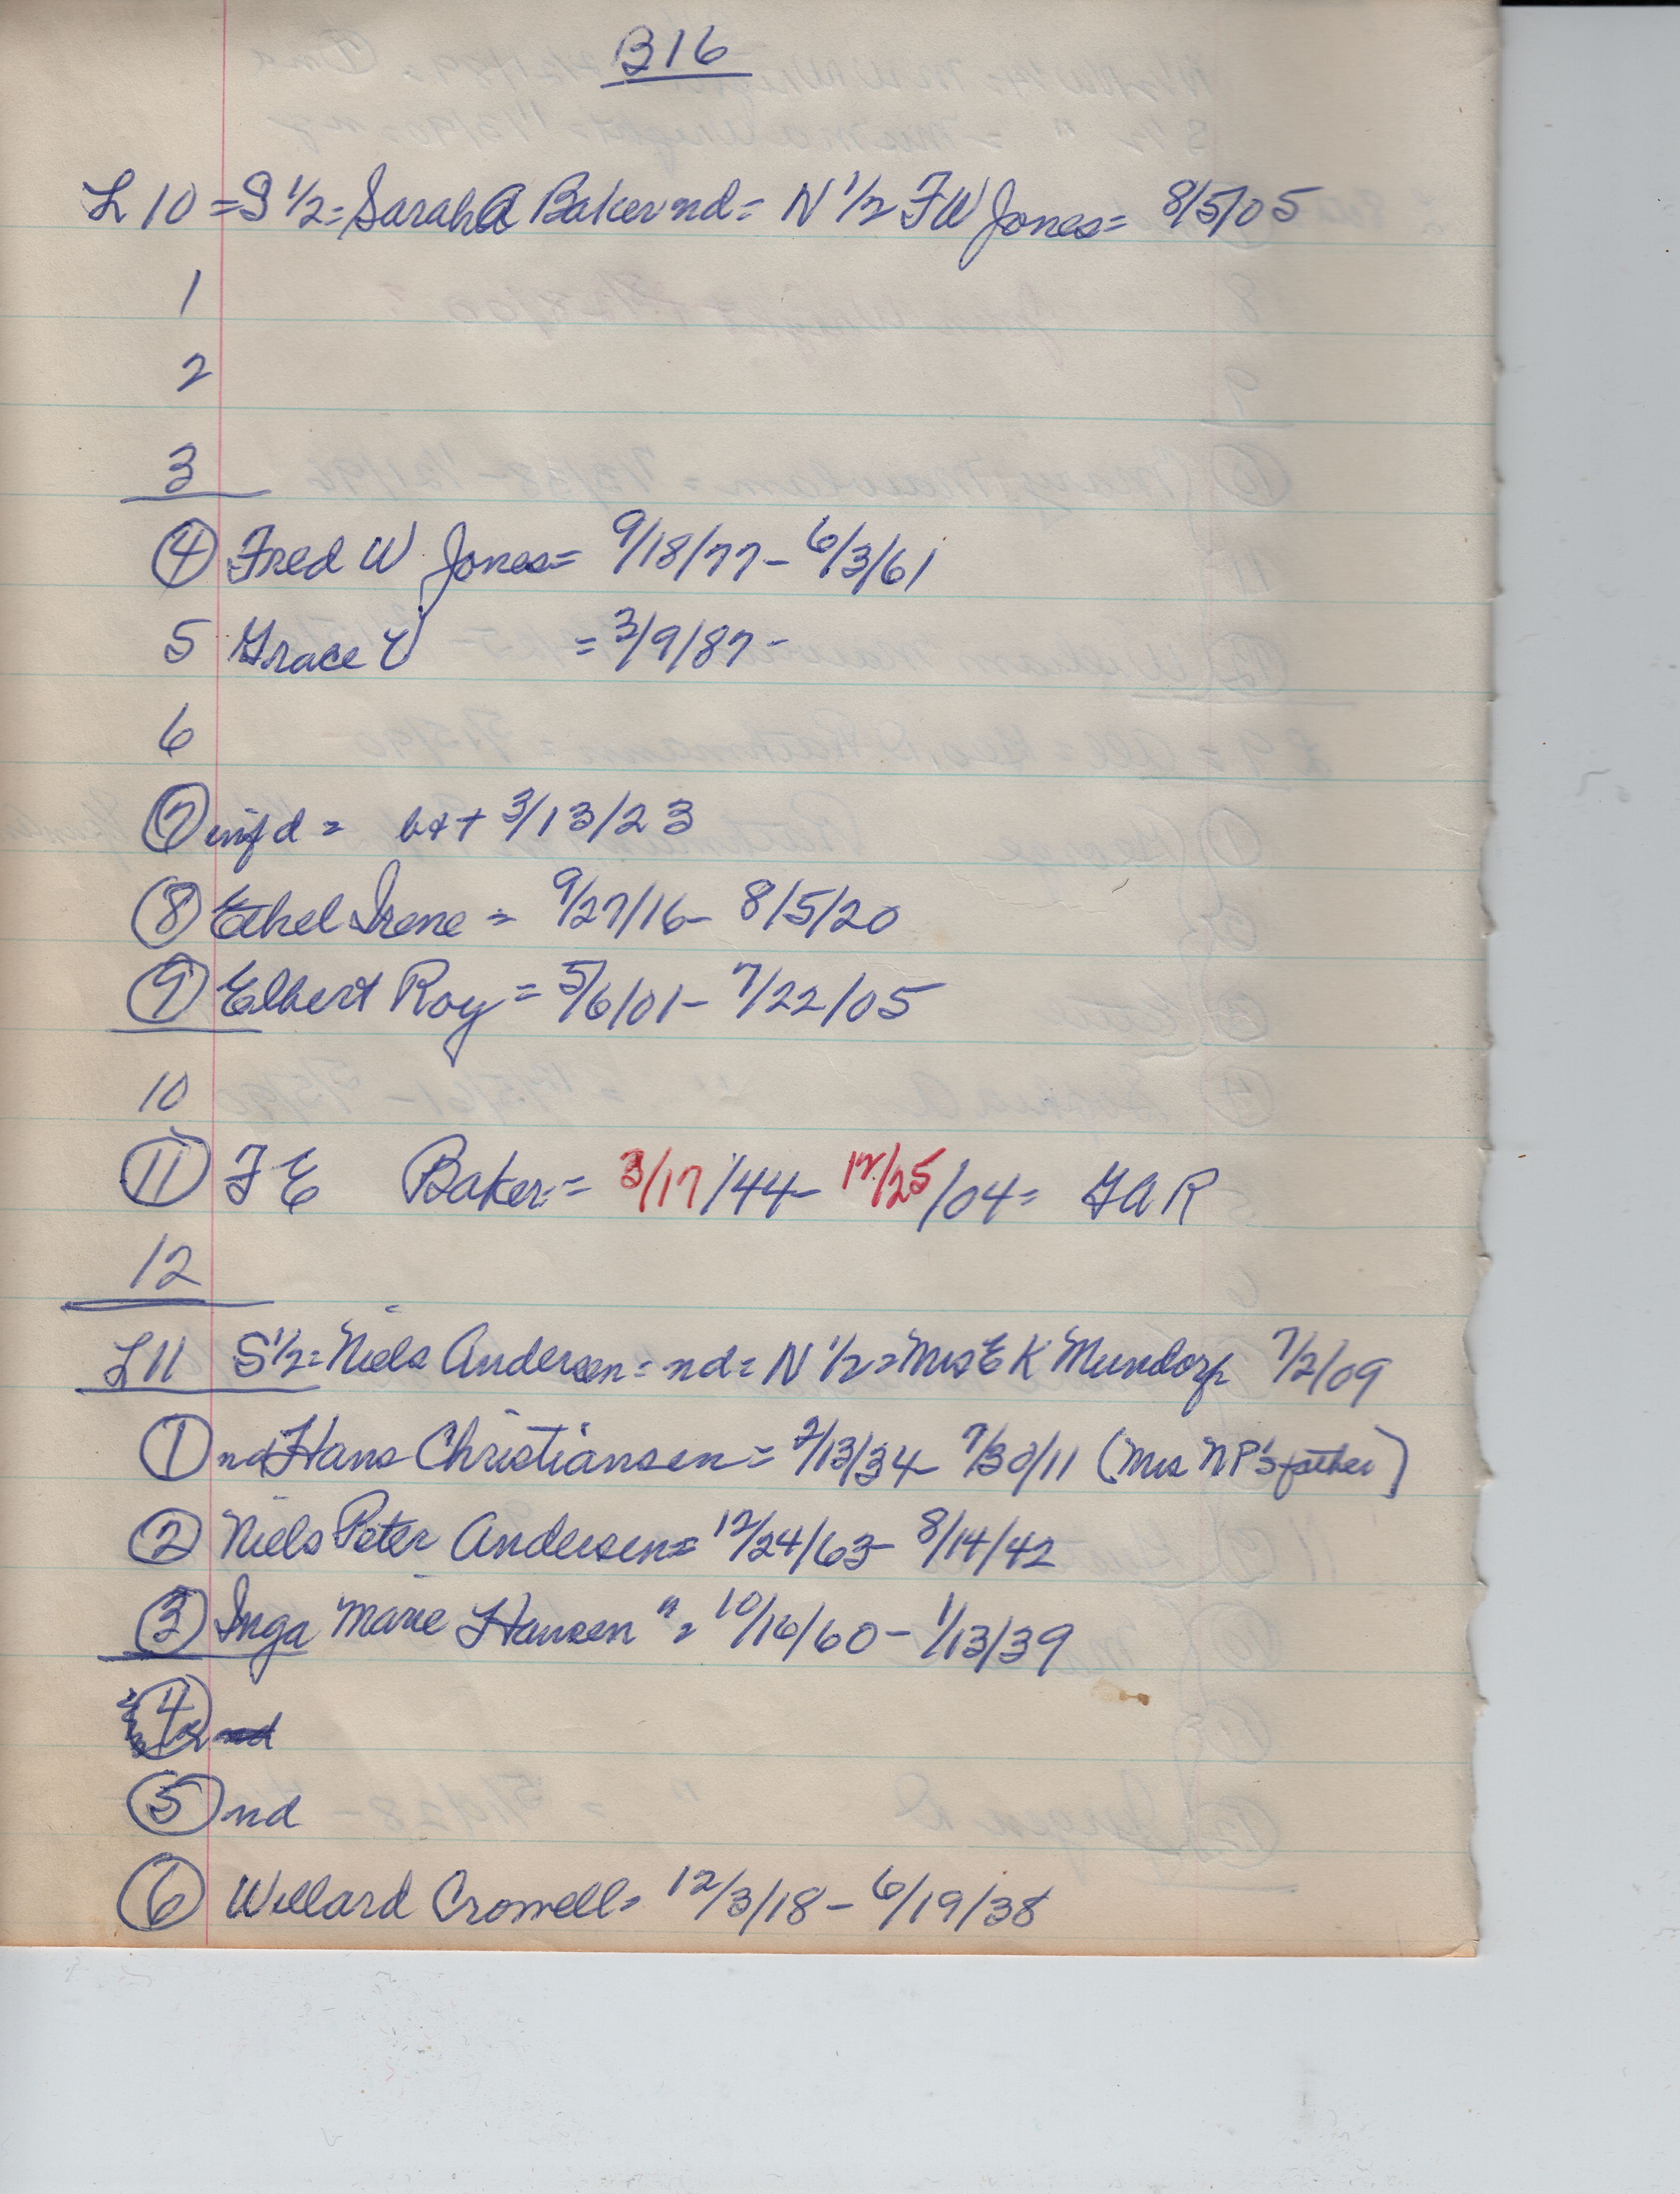 B16
L 10 = S 1/2 = Sarah A Baker nd = N 1/2 FW Jones = 8/5/05
1
2
3
4 Fred W Jones = 9/18/77 - 6/3/61
5 Grace E = 3/9/87 -
6
7 inf d = b & + 3/13/23
8 Ethel Irene = 9/27/16 - 8/5/20
9 Elbert Roy = 5/6/01 - 7/22/05
10
11 F E Baker = 3/17/44 - 12/25/04 = GAR
12
L11 S 1/2 = Niels Andersen = nd = N 1/2 = Mrs E K Mundorf 7/2/09
1 nd Hans Christiansen = 2/13/34 - 7/30/11 (Mrs NP's father)
2 Niels Peter Andersen = 12/24/63 - 8/14/42
3 Inga Marie Hansen " = 10/16/60 - 1/13/39
4 nd
5 nd
6 Willard Cromwell = 12/3/18 - 6/19/38